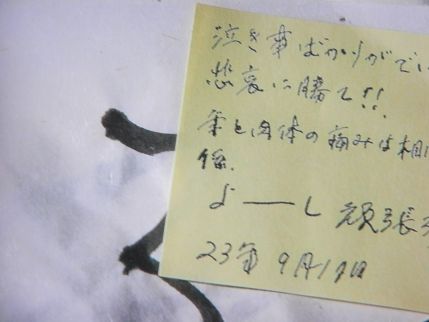 泣き事ばかりがでし
悲哀に勝て!!
筆と肉体の痛みは相
係.
よーし 頑張
23年 9月18日